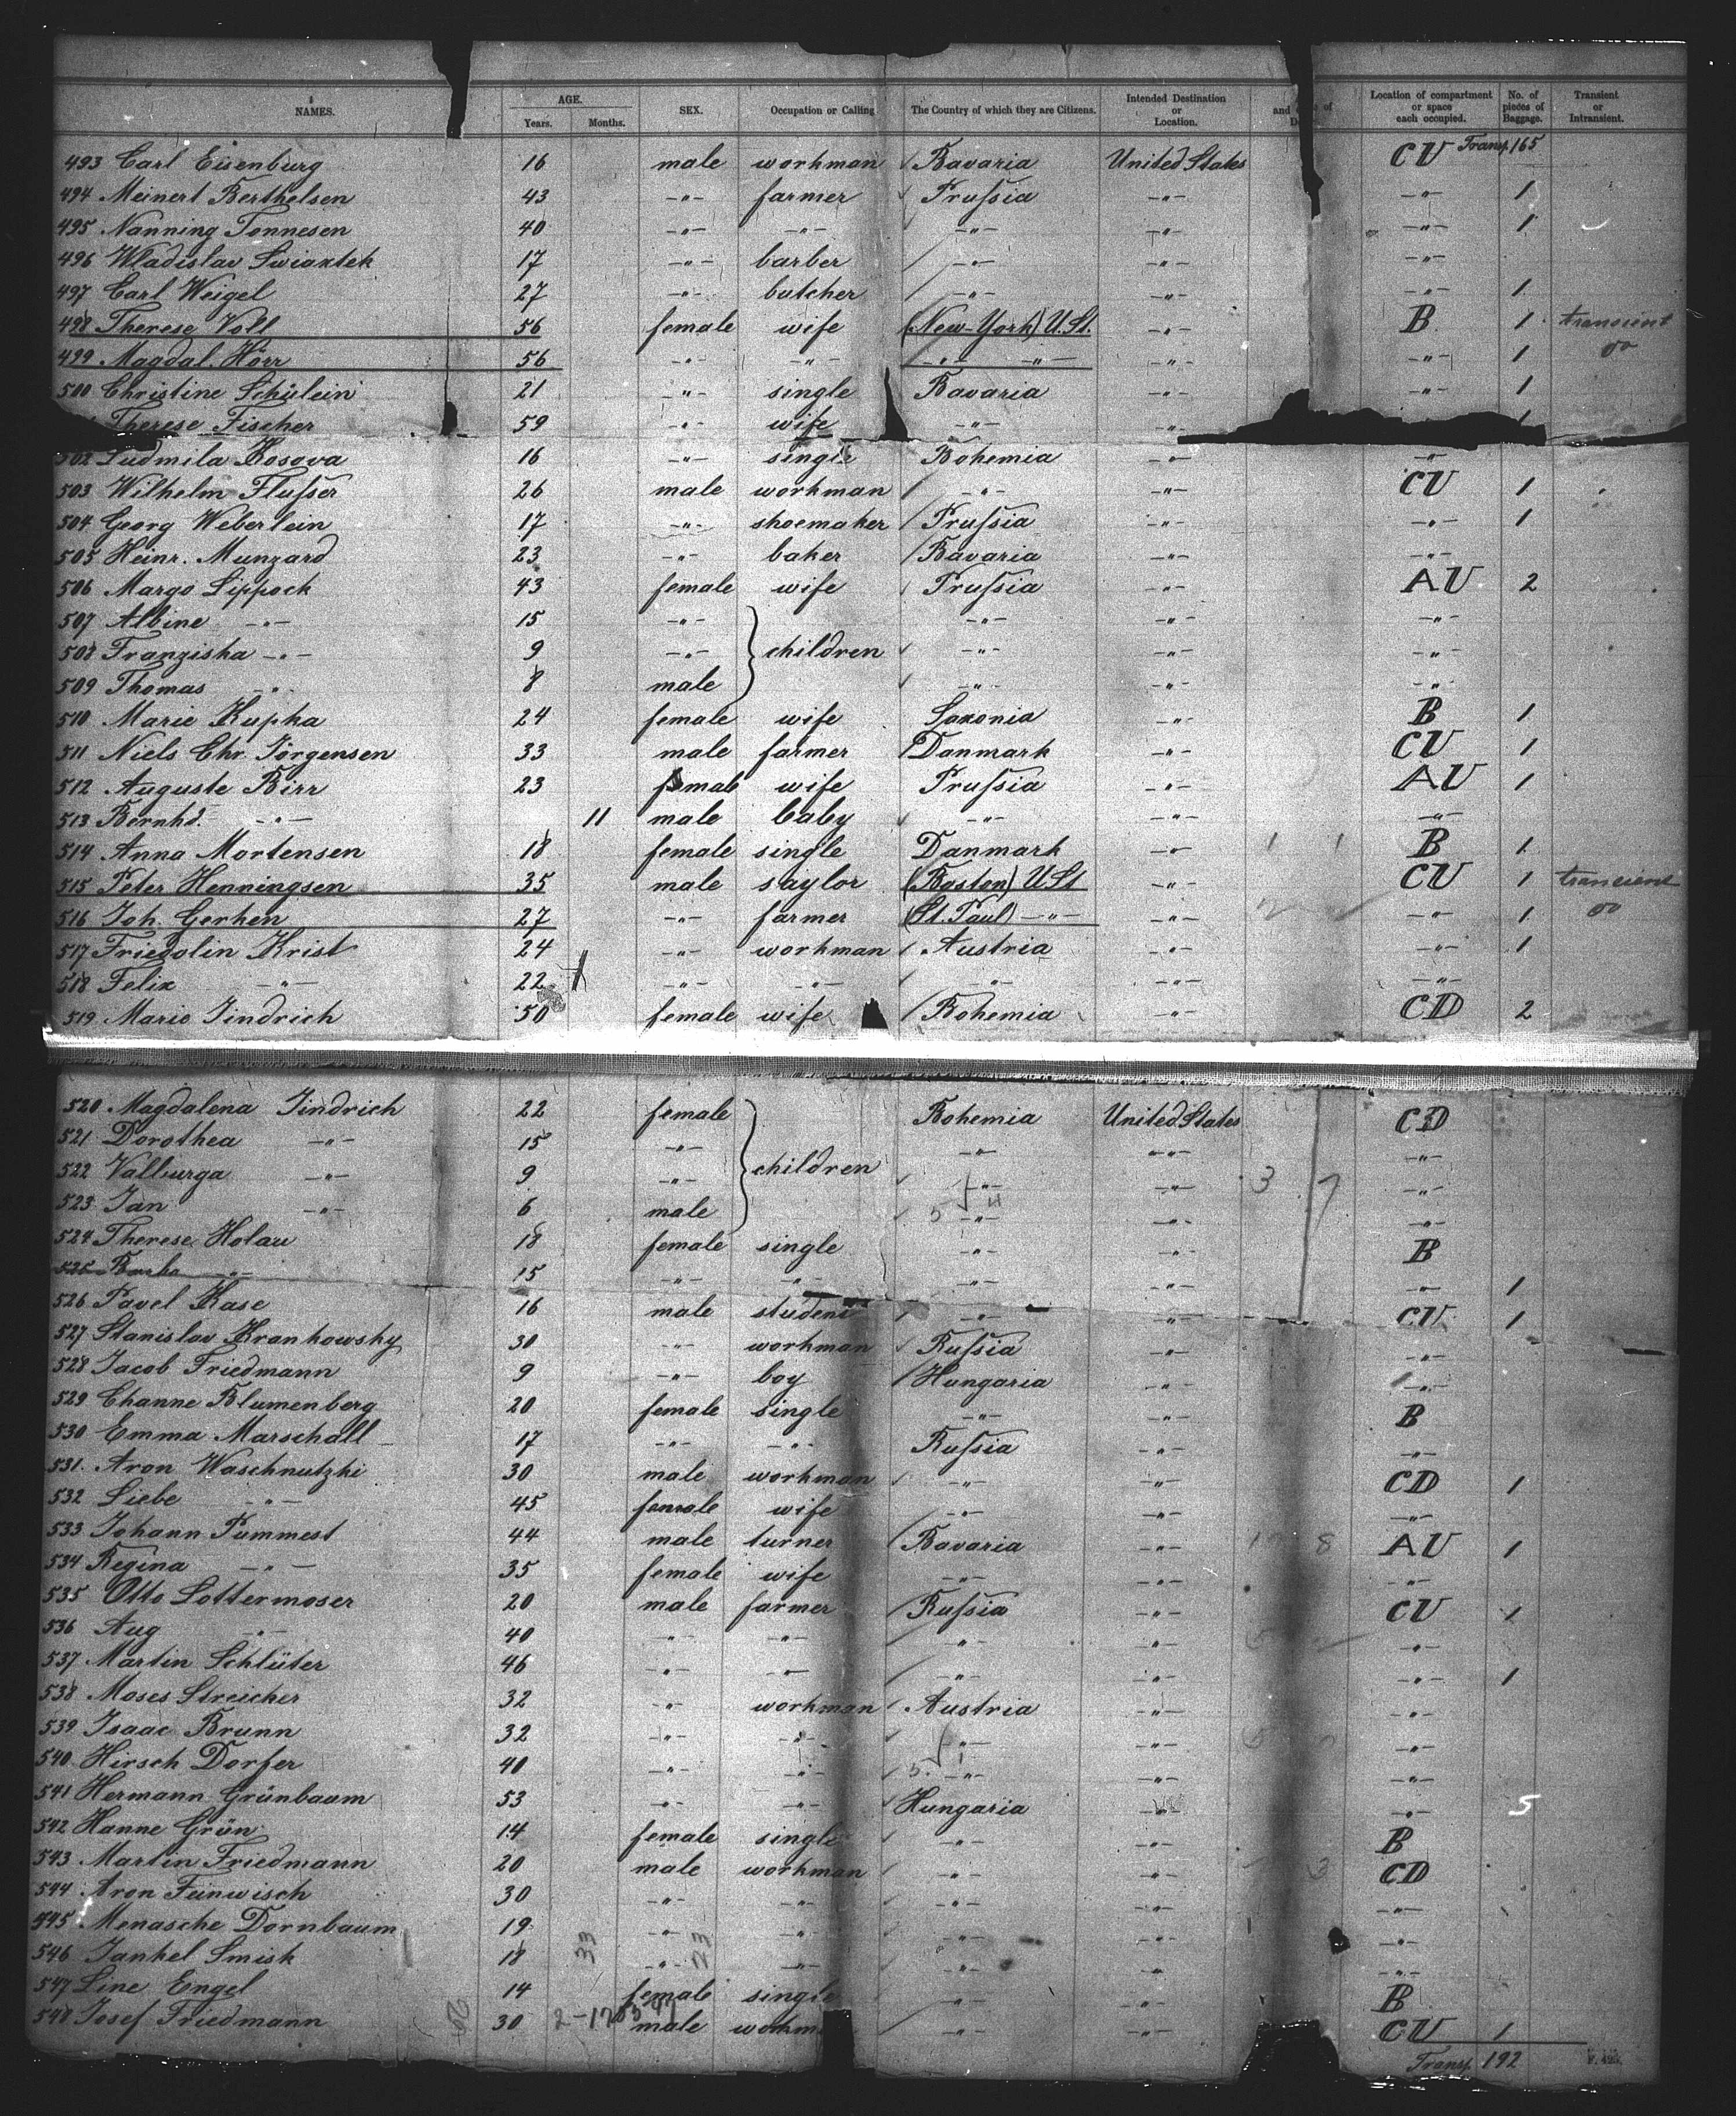 NAMES. AGE. Years. Months. SEX. Occupation or Calling The Country of which they are Citizens. Intended Destination or Location. and of Location of compartment or space each occupied. No. of pieces of Baggage. Transient or Intransient.
Transp. 165
493 Carl Eisenburg 16 male workman Bavaria United States CU
494 Meinert Berthelsen 43 -"- farmer Prussia -"- -"- 1
495 Nanning Tonnesen 40 -"- -"- -"- -"- -"- 1
496 Wladislav Swiaxtek 17 -"- barber -"- -"- -"-
497 Carl Weigel 27 -"- butcher -"- -"- -"- 1
498 Therese Voll 56 female wife (New-York) U.St. -"- B 1 transient
499 Magdal. Hörr 56 -"- -"- -"- -"- -"- -"- 1 do
500 Christine Schülein 21 -"- single Bavaria -"- -"- 1
Therese Fischer 59 -"- wife -"- -"-
502 Ludmila Kosova 16 -"- single Bohemia -"- -"-
503 Wilhelm Flusser 26 male workman -"- -"- CU 1
504 Georg Weberlein 17 -"- shoemaker Prussia -"- -"- 1
505 Heinr. Munzard 23 -"- baker Bavaria -"- -"-
506 Margo Lippock 43 female wife Prussia -"- AU 2
507 Albine -"- 15 -"- children -"- -"- -"-
508 Franziska -"- 9 -"- -"- -"- -"-
509 Thomas -"- 8 male -"- -"- -"-
510 Marie Kupka 24 female wife Saxonia -"- B 1
511 Niels Chr. Jörgensen 33 male farmer Danmark -"- CU 1
512 Auguste Birr 23 femal wife Prussia -"- AU 1
513 Bernhd. -"- 11 male baby -"- -"- -"-
514 Anna Mortensen 18 female single Danmark -"- B 1
515 Peter Henningsen 35 male saylor (Boston) U.St -"- CU 1 transient
516 Joh. Gerken 27 -"- farmer (St. Paul) -"- -"- -"- 1 do
517 Friedolin Krist 24 -"- workman Austria -"- -"- 1
518 Felix -"- 22 -"- -"- -"- -"- -"-
519 Marie Jindrich 50 female wife Bohemia -"- CD 2
520 Magdalena Jindrich 22 female children Bohemia United States CD
521 Dorothea -"- 15 -"- -"- -"- -"-
522 Valburga -"- 9 -"- -"- -"- 3 7 -"-
523 Jan -"- 6 male -"- -"- -"-
524 Therese Holau 18 female single -"- -"- B
525 Barba -"- 15 -"- -"- -"- -"- -"- 1
526 Pavel Kase 16 male student -"- -"- CU 1
527 Stanislav Krankowsky 30 -"- workman Russia -"- -"-
528 Jacob Friedmann 9 -"- boy Hungaria -"- -"-
529 Channe Blumenberg 20 female single -"- -"- B
530 Emma Marschall 17 -"- -"- Russia -"- -"-
531. Aron Waschnutzki 30 male workman -"- -"- CD 1
532 Liebe -"- 45 female wife -"- -"- -"-
533 Johann Pummest 44 male turner Bavaria -"- 8 AU 1
534 Regina -"- 35 female wife -"- -"- -"-
535 Otto Lottermoser 20 male farmer Russia -"- CU 1
536 Aug -"- 40 -"- -"- -"- -"- -"-
537 Martin Schlüter 46 -"- -"- -"- -"- -"- 1
538 Moses Streicher 32 -"- workman Austria -"- -"-
539 Isaac Brunn 32 -"- -"- -"- -"- -"-
540 Hirsch Dorfer 40 -"- -"- -"- -"- -"-
541 Hermann Grünbaum 53 -"- -"- Hungaria -"- -"- 5
542 Hanne Grün 14 female single -"- -"- B
543 Martin Friedmann 20 male workman -"- -"- 3 CD
544 Aron Feinwisch 30 -"- -"- -"- -"- -"-
545 Menasche Dornbaum 19 -"- -"- -"- -"- -"-
546 Jankel Smisk 18 -"- -"- -"- -"- -"-
547 Line Engel 14 female single -"- -"- B
548 Josef Friedmann 30 male workm -"- -"- CU 1
Transp. 192